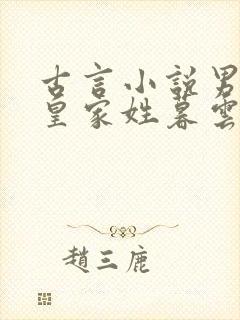 古言小說男
皇家姓暮雲
趙三鹿